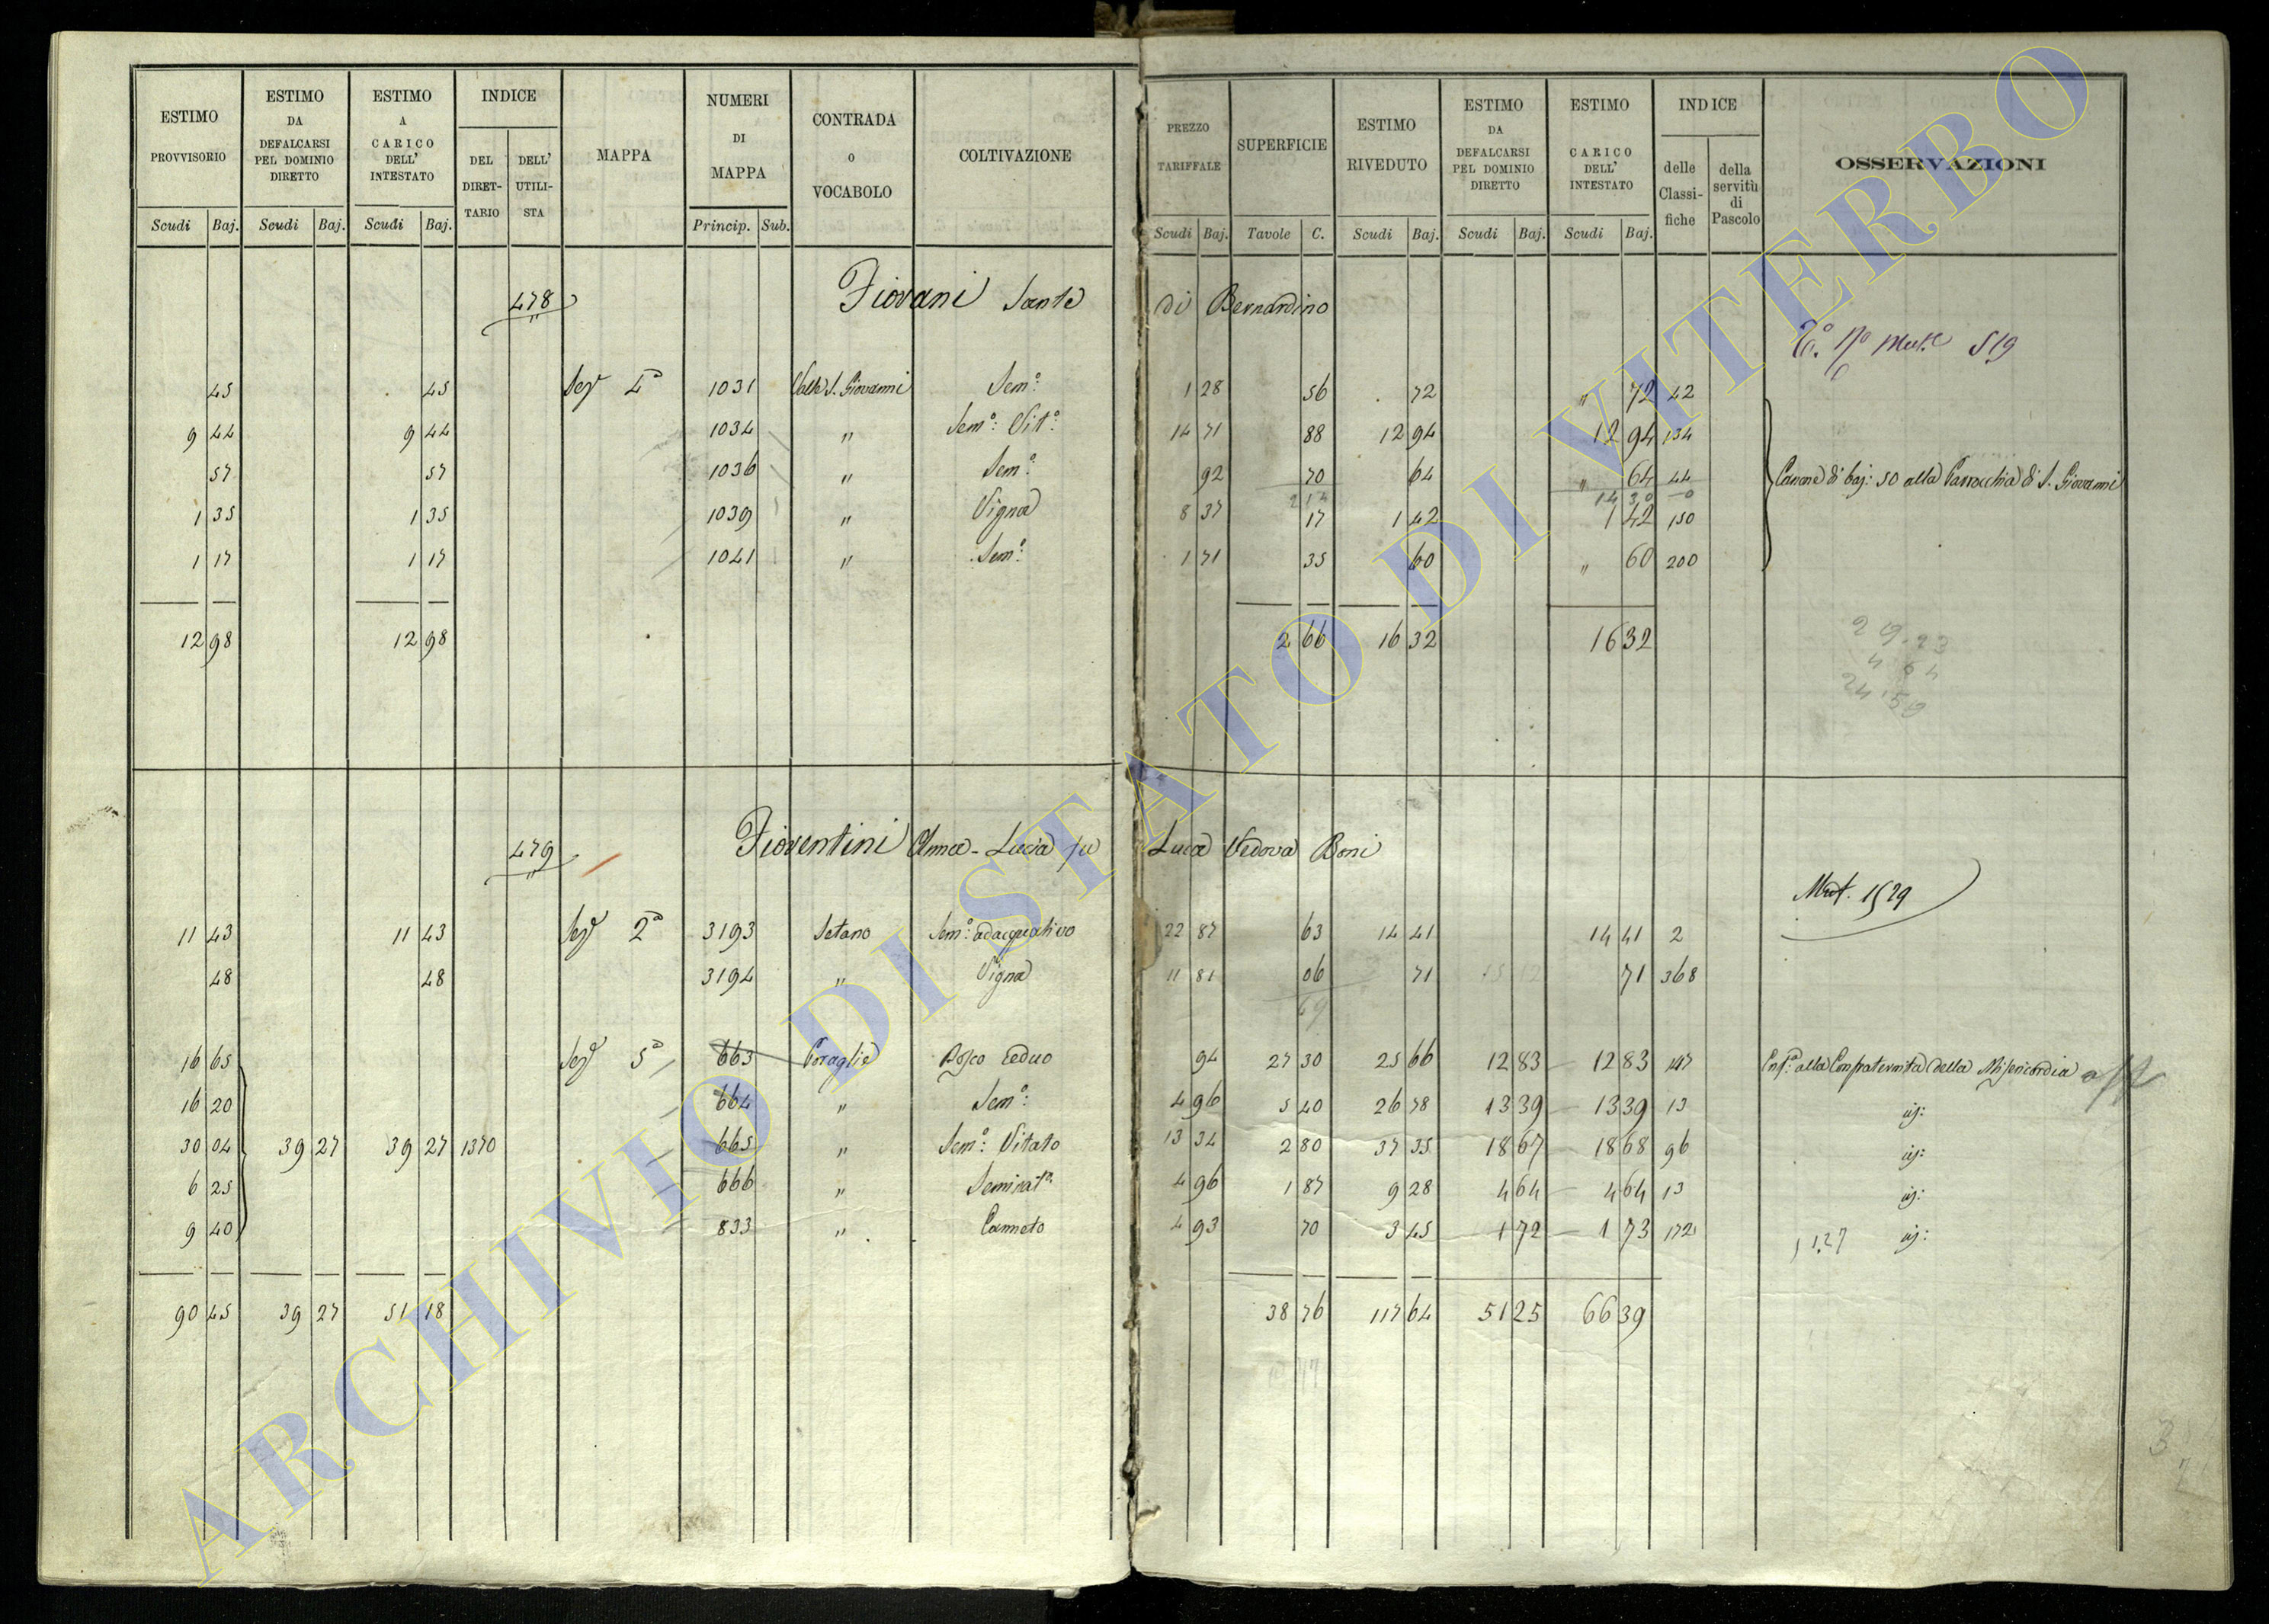 ESTIMO PROVVISORIO | ESTIMO DA DEFALCARSI PEL DOMINIO DIRETTO | ESTIMO A CARICO DELL' INTESTATO | INDICE DEL DIRETTARIO | DELL' UTILISTA | MAPPA | NUMERI DI MAPPA | CONTRADA O VOCABOLO | COLTIVAZIONE | PREZZO TARIFFALE | SUPERFICIE | ESTIMO RIVEDUTO | ESTIMO DA DEFALCARSI PEL DOMINIO DIRETTO | ESTIMO A CARICO DELL' INTESTATO | INDICE delle Classifiche | della servitù di Pascolo | OSSERVAZIONI
Scudi Baj. | Scudi Baj. | Scudi Baj. | Princip. Sub. | Scudi Baj. | Tavole C. | Scudi Baj. | Scudi Baj. | Scudi Baj.
478 Fiovani Sante di Bernardino
519
45 | 45 | Sez 4ª | 1031 | Valle S. Giovanni | Sem.º | 1 28 | 56 | 72 | " 72 | 42
9 44 | 9 44 | 1034 | " | Sem.º Vit.º | 14 71 | 88 | 12 94 | 12 94 | 134
57 | 57 | 1036 | " | Sem.º | 92 | 70 | 64 | " 64 | 44 | Canone di baj: 50 alla Parrocchia di S. Giovanni
2 14 | 14 30
1 35 | 1 35 | 1039 | " | Vigna | 8 37 | 17 | 1 42 | 1 42 | 150
1 17 | 1 17 | 1041 | " | Sem.º | 1 71 | 35 | 60 | " 60 | 200
12 98 | 12 98 | 2 66 | 16 32 | 16 32
4 64
479 Fioventini Anna-Lucia fu Luca Vedova Boni
Mut. 1529
11 43 | 11 43 | Sez 2ª | 3193 | Setano | Sem.º adacquativo | 22 87 | 63 | 14 41 | 14 41 | 2
48 | 48 | 3194 | " | Vigna | 11 81 | 06 | 71 | 71 | 368
69
16 65 | Sez 5ª | 663 | Poraglie | Bosco ceduo | 94 | 27 30 | 25 66 | 12 83 | 12 83 | 147 | Enf.ª alla Confraternita della Misericordia
16 20 | 664 | " | Sem.º | 4 96 | 5 40 | 26 78 | 13 39 | 13 39 | 13 | id:
30 04 | 39 27 | 39 27 | 1370 | 665 | " | Sem.º Vitato | 13 34 | 2 80 | 37 35 | 18 67 | 18 68 | 96 | id:
6 25 | 666 | " | Seminat.º | 4 96 | 1 87 | 9 28 | 4 64 | 4 64 | 13 | id:
9 40 | 833 | " | Canneto | 4 93 | 70 | 3 45 | 1 72 | 1 73 | 172 | id:
90 45 | 39 27 | 51 18 | 38 76 | 117 64 | 51 25 | 66 39
ARCHIVIO DI STATO DI VITERBO